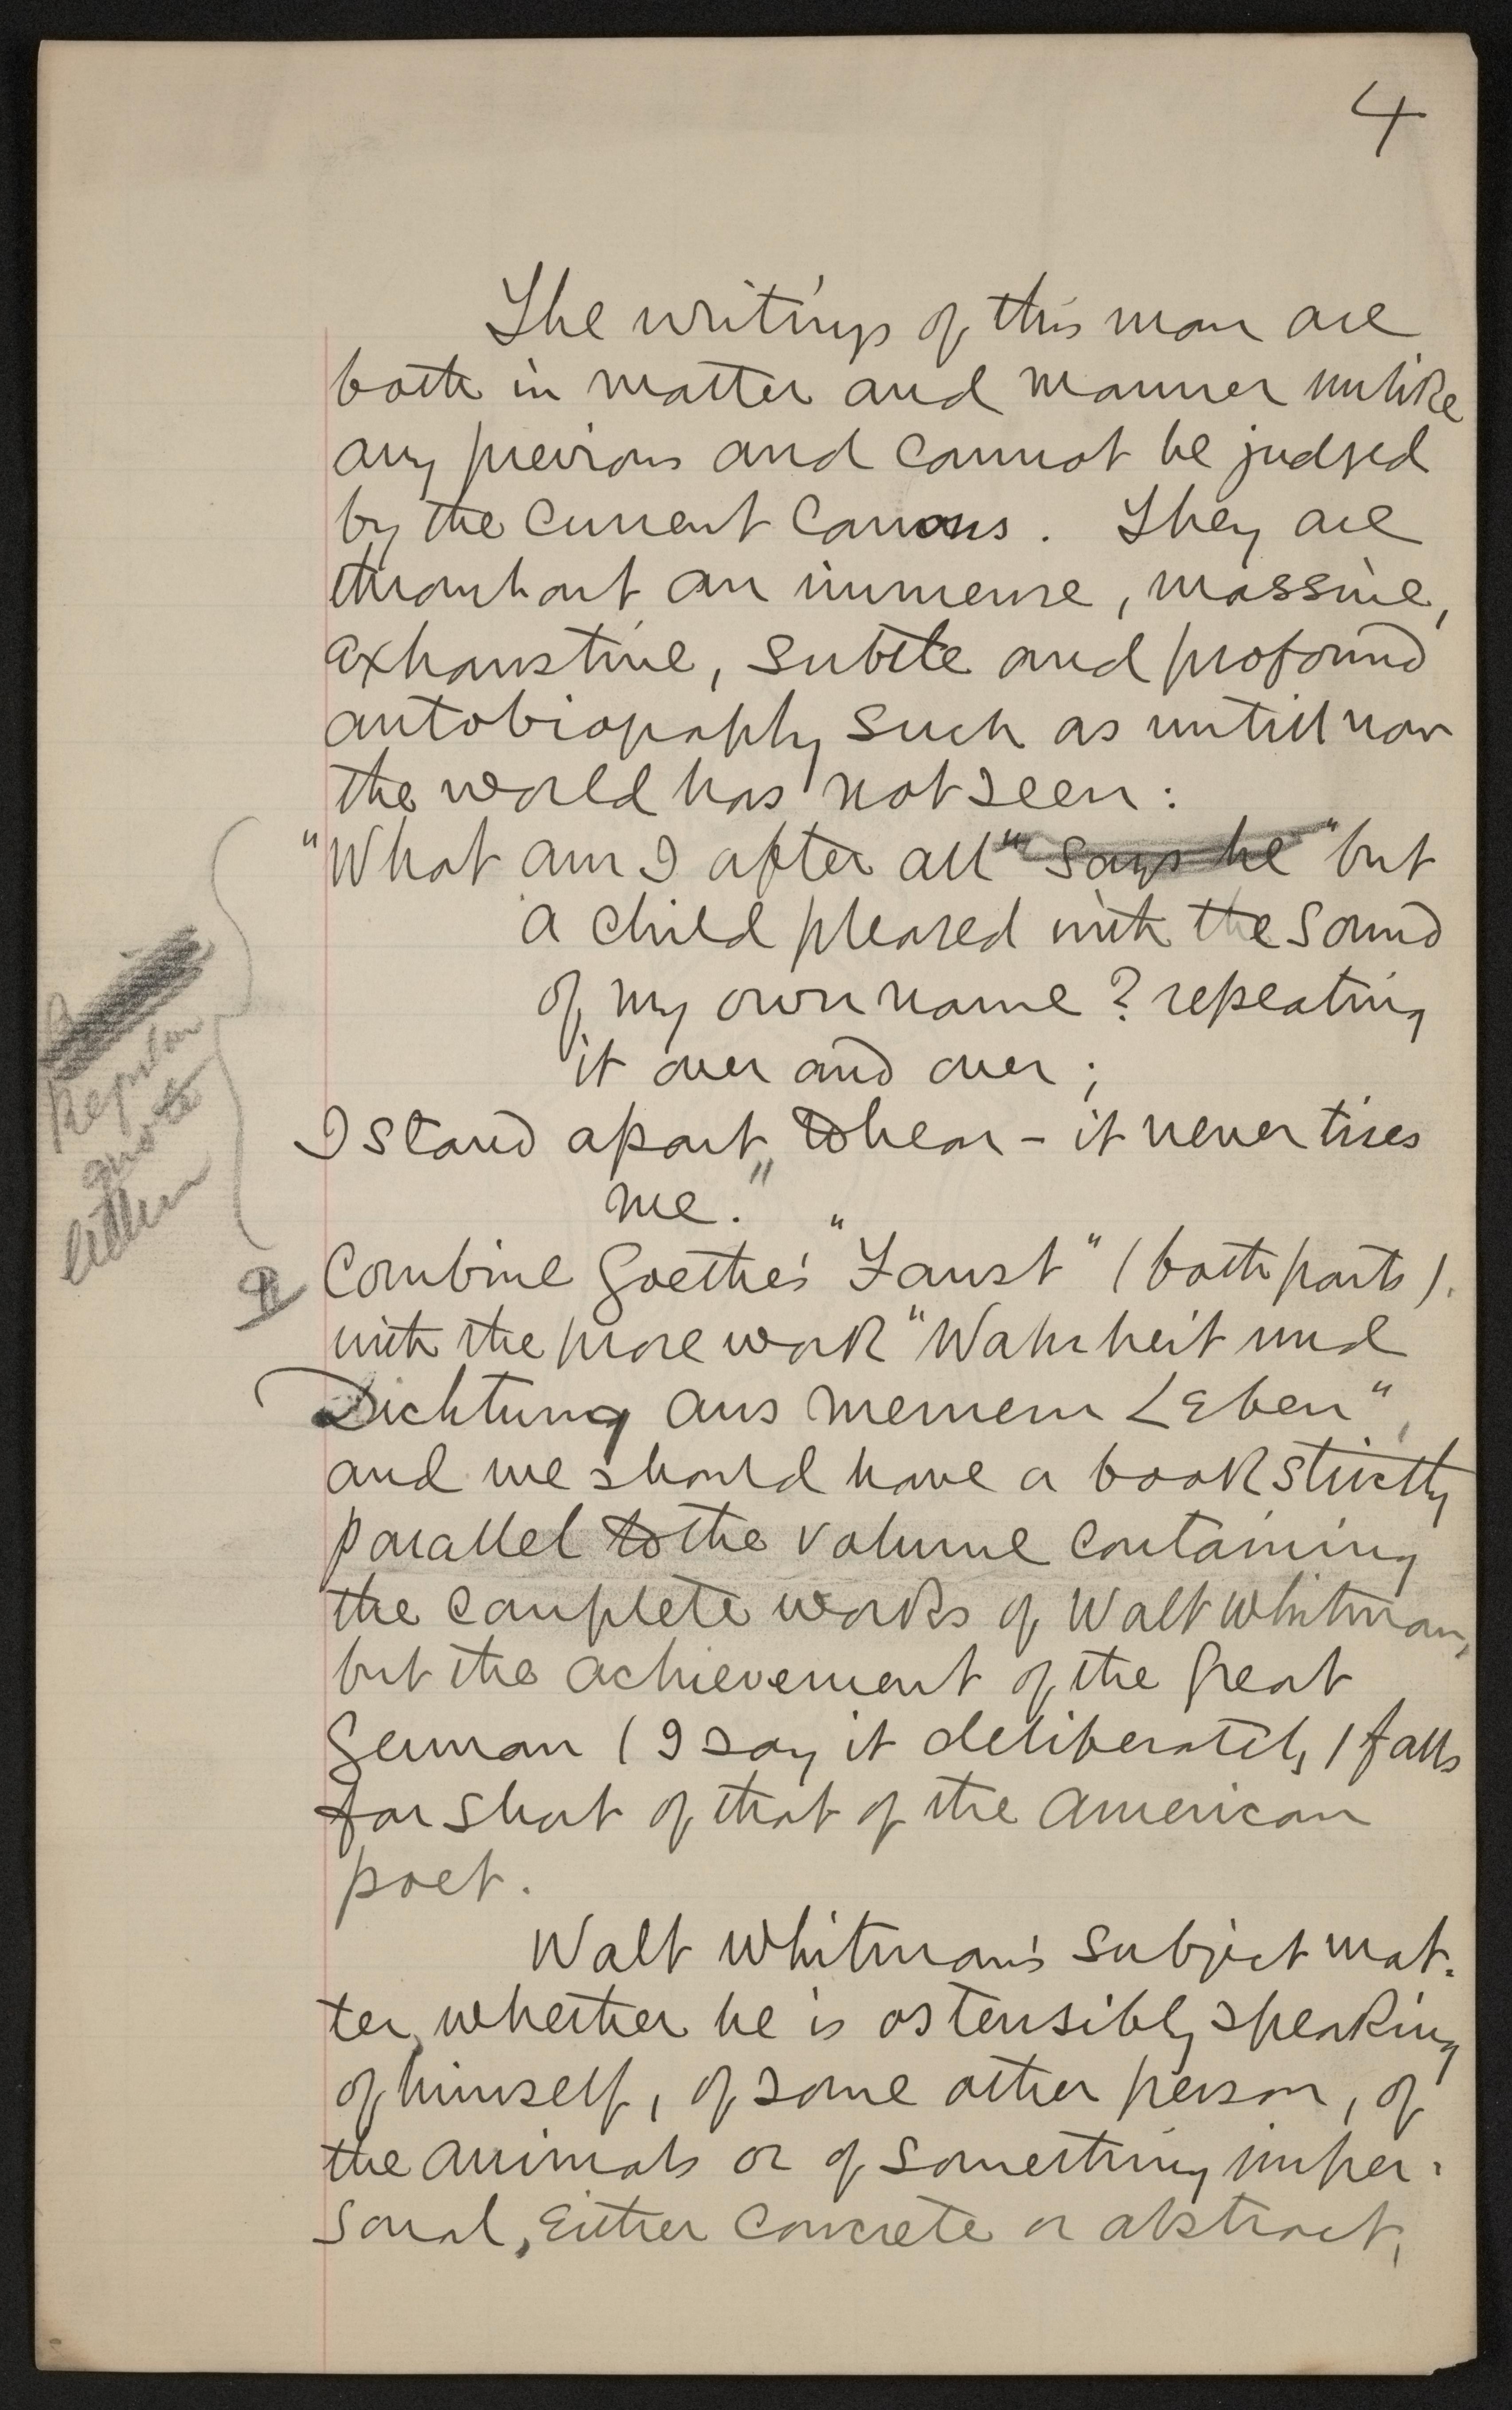 4
The writings of this man are
both in matter and manner unlike
any previous and cannot be judged
by the current canons. They are
throughout an immense, massive,
exhaustive, subtle and profound
autobiography such as untill now
the world has not seen:
"What am I after all" says he "but
a child pleased with the sound
of my own name? repeating
it over and over;
I stand apart to hear – it never tires
me."
Regular
quote
letter
Combine Goethe's "Faust" (both parts).
with the prose work "Wahrheit und
Dichtung aus meinem Leben",
and we should have a book strictly
parallel to the volume containing
the complete works of Walt Whitman,
but the achievement of the great
German (I say it deliberately) falls
far short of that of the American
poet.
Walt Whitman's subject mat-
ter, whether he is ostensibly speaking
of himself, of some other person, of
the animals or of something imper-
sonal, either concrete or abstract,